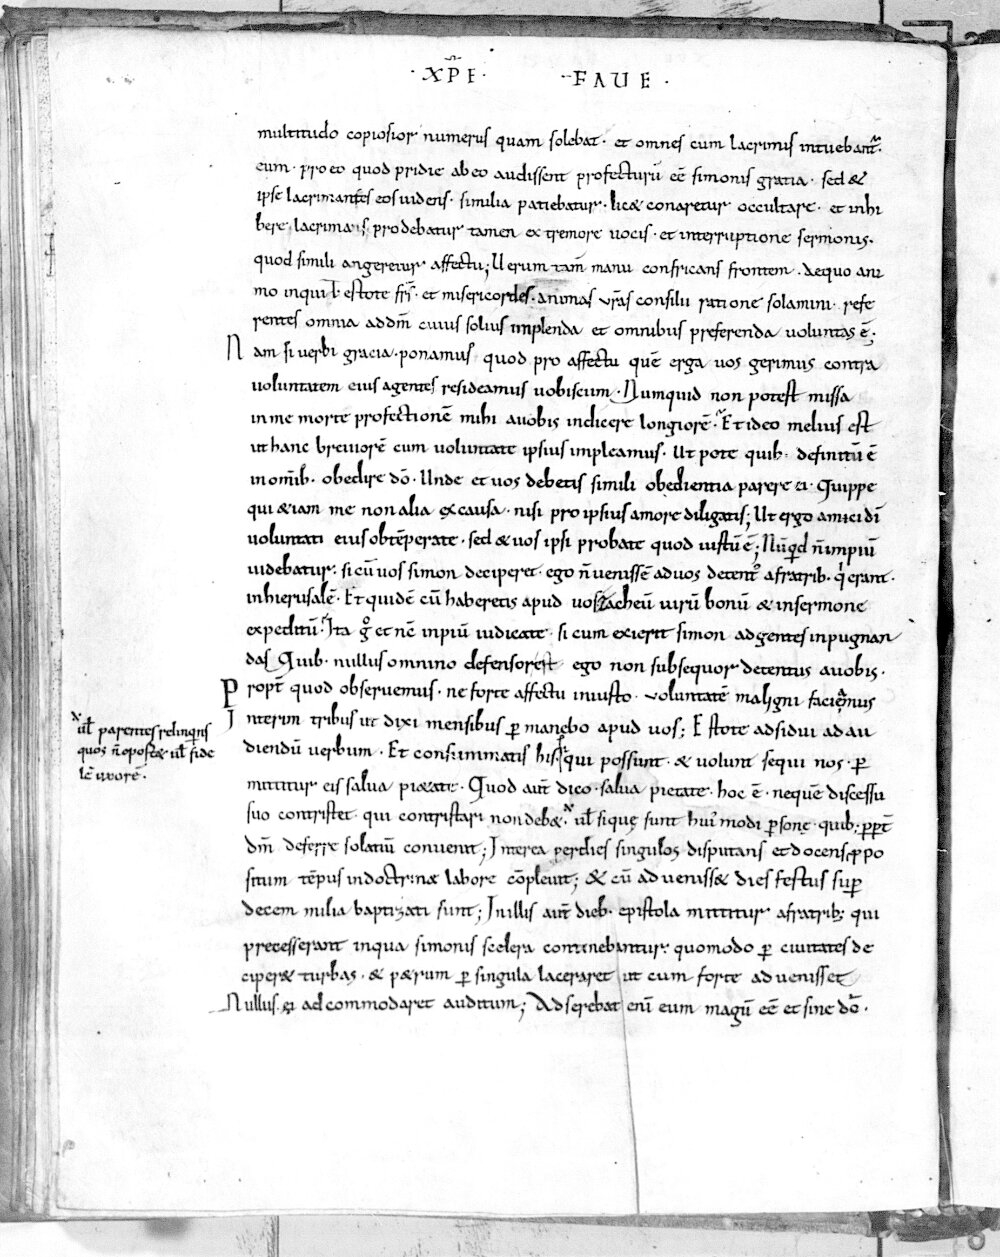 ·XP̃E· FAUE·
multitudo copiosior numerus quam solebat· et omnes cum lacrimis intuebant̃·
eum· pro eo quod pridie ab eo audissent profecturũ eẽ simonis gratia· sed &
ipse lacrimantes eos videns· similia patiebatur· lic& conaretur occultare· et inhi
bere lacrimans prodebatur tamen ex tremore vocis· et interruptione sermonis·
quod simili angeretur affectu; Uerum tam̃ manu confricans frontem· Aequo ani
mo inquit estote frs̃· et misericordes animas vrãs consilii ratione solamini· refe
rentes omnia ad dm̃ cuius solius implenda et omnibus preferenda voluntas ẽ;
Nam si verbi gracia· ponamus quod pro affectu quẽ erga vos gerimus contra
voluntatem eius agentes resideamus vobiscum· Numquid non potest missa
in me morte profectionẽ mihi a vobis indicere longiorẽ· Et ideo melius est
ut hanc breviorẽ cum voluntate ipsius impleamus· Ut pote quib· definitũ ẽ
in om̃ib· obedire dõ· Unde et vos debetis simili obedientia parere ei· Quippe
qui &iam me non alia ex causa· nisi pro ipsius amore diligatis; Ut ergo amici dĩ
voluntati eius obtẽperate· sed & vos ipsi probate quod iustũ ẽ; Nũquid ñ impiũ
videbatur· si cũ vos simon deciperet· ego ñ venissẽ ad vos detent' a fratrib· qi erant·
in hierusalẽ· Et quidẽ cũ haberetis apud vos zacheũ virũ bonũ & in sermone
expeditũ· Ita g° et nẽ inpiũ iudicate· si cum exierit simon ad gentes inpugnan
das Quib· nullus omnino defensor est ego non subsequor detentus a vobis·
Propt̃ quod observemus· ne forte affectu iniusto· voluntatẽ maligni faciamus
Interim tribus ut dixi mensibus p̱ manebo apud vos; Estote adsidui ad au
diendũ verbum· Et consummatis his· si qui possunt· & volunt sequi nos· p̱
mittitur eis salva pi&ate· Quod aut̃ dico· salva pietate· hoc ẽ· nequẽ discessu
suo contristet· qui contristari non deb&· ul̃ si quę sunt hui' modi p̱sonę· quib; pp̱t̃
dm̃ deferre solatiũ convenit; Interea per dies singulos disputans et docens p̱po
situm tẽpus in doctrinae labore cõplevit; & cũ advenisset dies festus sup̱
decem milia baptizati sunt; In illis aut̃ dieb· epistola mittitur a fratrib; qui
precesserant in qua simonis scelera continebantur· quomodo p̱ civitates de
ciper& turbas· & p&rum p̱ singula laceraret ut cum forte advenisset
Nullus· ei adcommodaret auditum; Adserebat enĩ eum magũ eẽ et sine dõ·
ul̃ parentes relinquens
quos ñ oport& ul̃ fide
lẽ uxorẽ·